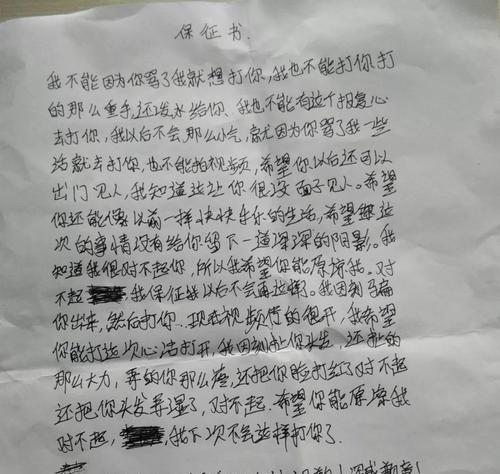 保证书.
我不能因为你骂了我就想打你,我也不能打你打
的那么重手,还泼水给你、我也不能有这个报复心
去打你,我以后不会那么小气,就因为你骂了我一些
话就去打你,也不能拍视频,希望你以后还可以
出门见人,我知道这让你很没面子见人。希望
你还能像以前一样快快乐乐的生活,希望这
次的事情没有给你留下一道深深的阴影。我
知道我很对不起你,所以我希望你能原谅我。对
不起,我保证我以后不会再这样。我因为骗
你出来,然后打你..现在视频传的很开,我希望
你能打这次心结打开,我因为扯你头发,还扯的
那么大力,弄的你那么痛,还把你脸打红了对不起
还把你头发弄湿了,对不起.希望你能原谅我
对不起,我下次不会这样打你了.